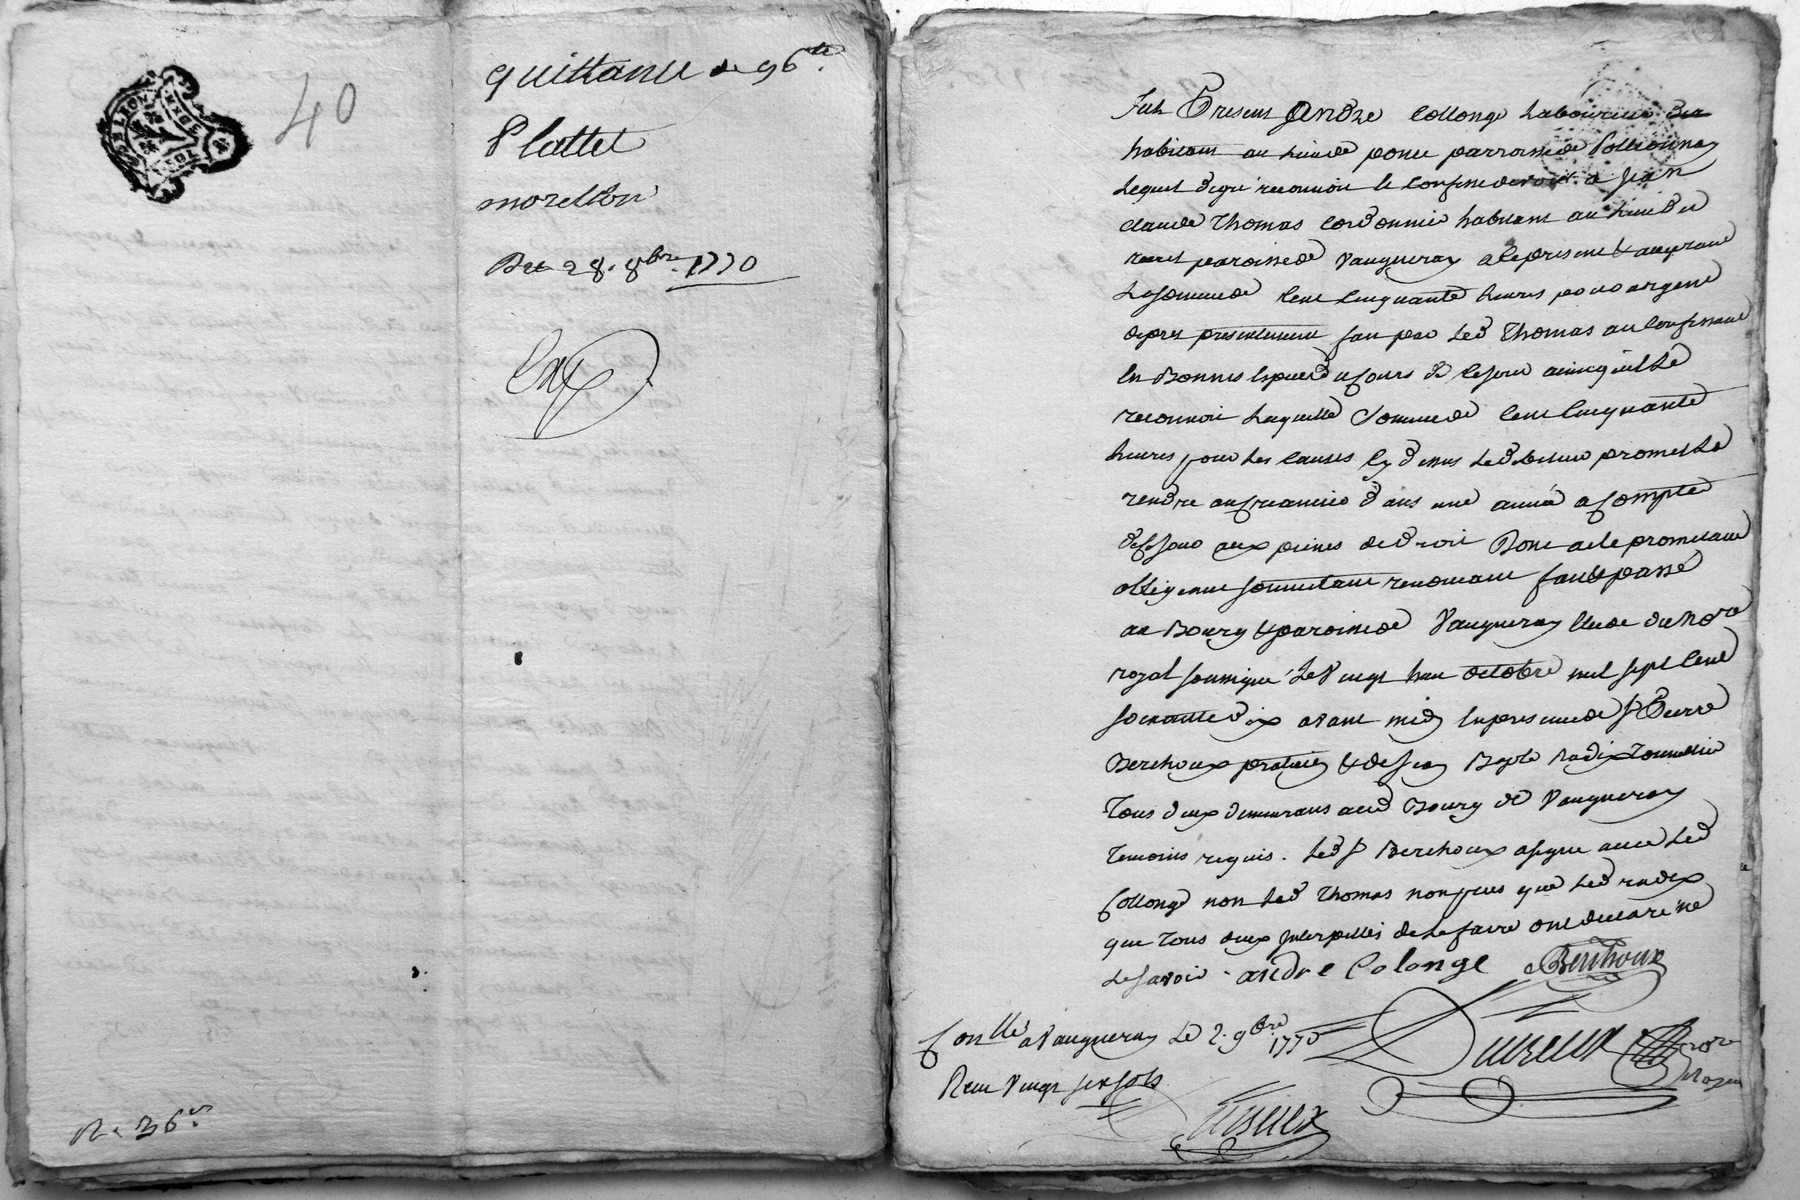 40
quittance de 96ᵗᵗ.
Plattet
morellon
Du 28. 8bre. 1770
R. 36s.
Fut Présent André Collonge Laboureur
habitant au lieu de ponce parroisse de Pollionnay
Lequel degré reconnoit et confesse devoir a Jean
claude Thomas Cordonnier habitant au lieu du
paroisse de Vaugneray a ce present & acceptant
La somme de Cent Cinquante Livres pour argent
depret presentement fait par Led Thomas au Confessant
En Bonnes Especes du Cours de Ce jour ainsy qu'il Le
reconnoit Laquelle Somme de Cent Cinquante
Livres pour Les Causes Cy dessus Led debiteur promet La
rendre au Creancier dans une année a Compter
de Ce jour aux peines de droit Dont acte promettant
obligeant soumettant renoncant fait & passé
au Bourg & paroisse de Vaugneray Etude du Nore
royal soussigné Le Vingt huit octobre mil sept Cent
soixante dix avant midy En presence de Sr Pierre
Berchoux praticien & de Jean Bapte Radix Tonnellier
Tous deux demeurans aud Bourg de Vaugneray
Temoins requis. Led Sr Berchoux a signé avec Led
Collonge non Led Thomas non plus que Led radix
que Tous deux Interpellés de Le faire ont declaré ne
Le savoir. andre Colonge Berchoux
Conllé a Vaugneray Le 2. 9bre. 1770
Reçu Vingt six sols
nore royal